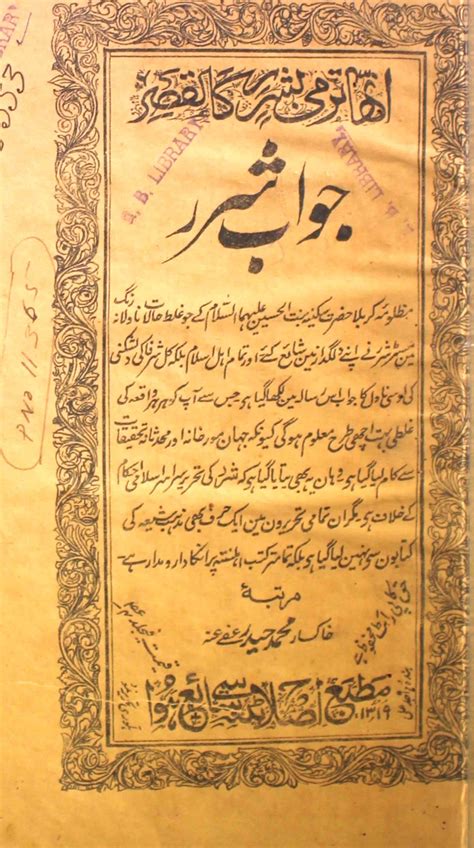 انها ترمی بشرر کالقصر
جواب شرر
مظلومۂ کربلا حضرت سکینہ بنت الحسین علیہما السّلام کے جو غلط حالات ناولانہ رنگ
مین مسٹر شرر نے اپنے دلگداز مین شائع کئے اور تمام اہل اسلام بلکہ کل شرفا کی دلشکنی
کی اوسی ناول کا جواب اس رسالہ مین لکھا گیا ہی جس سے آپ کو ہر ہر واقعہ کی
غلطی بہت اچھی طرح معلوم ہوگی کیونکہ جہان مورخانہ اور محدثانہ تحقیقات
سے کام لیا گیا ہی وہان یہ بھی بتایا گیا ہی کہ شرر کی تحریر سراسر اسلامی احکام
کے خلاف ہی مگر ان تمامی تحریرون مین ایک حرف بھی مذہب شیعہ کی
کتابون سے نہین لیا گیا ہی بلکہ تمامتر کتب اہلسنت پر انکا دار و مدار ہے۔
مرتبۂ
خاکسار محمد حیدر عفی عنہ
مطبع اصلاح سے شائع ہوا
۱۳۱۹
A. B. LIBRARY
LIBRARY
PNO 11565